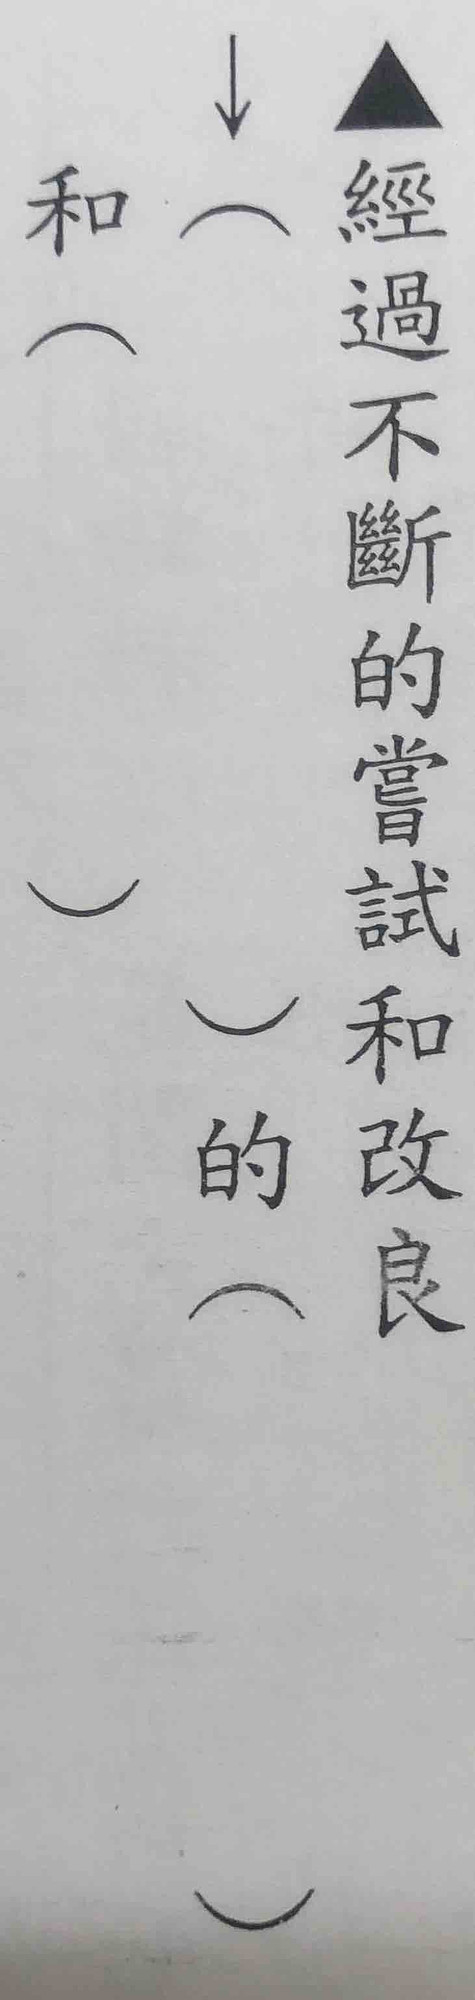 ▲經過不斷的嘗試和改良
↓（　　　　　　）的（　　　　　）
和（　　　　）